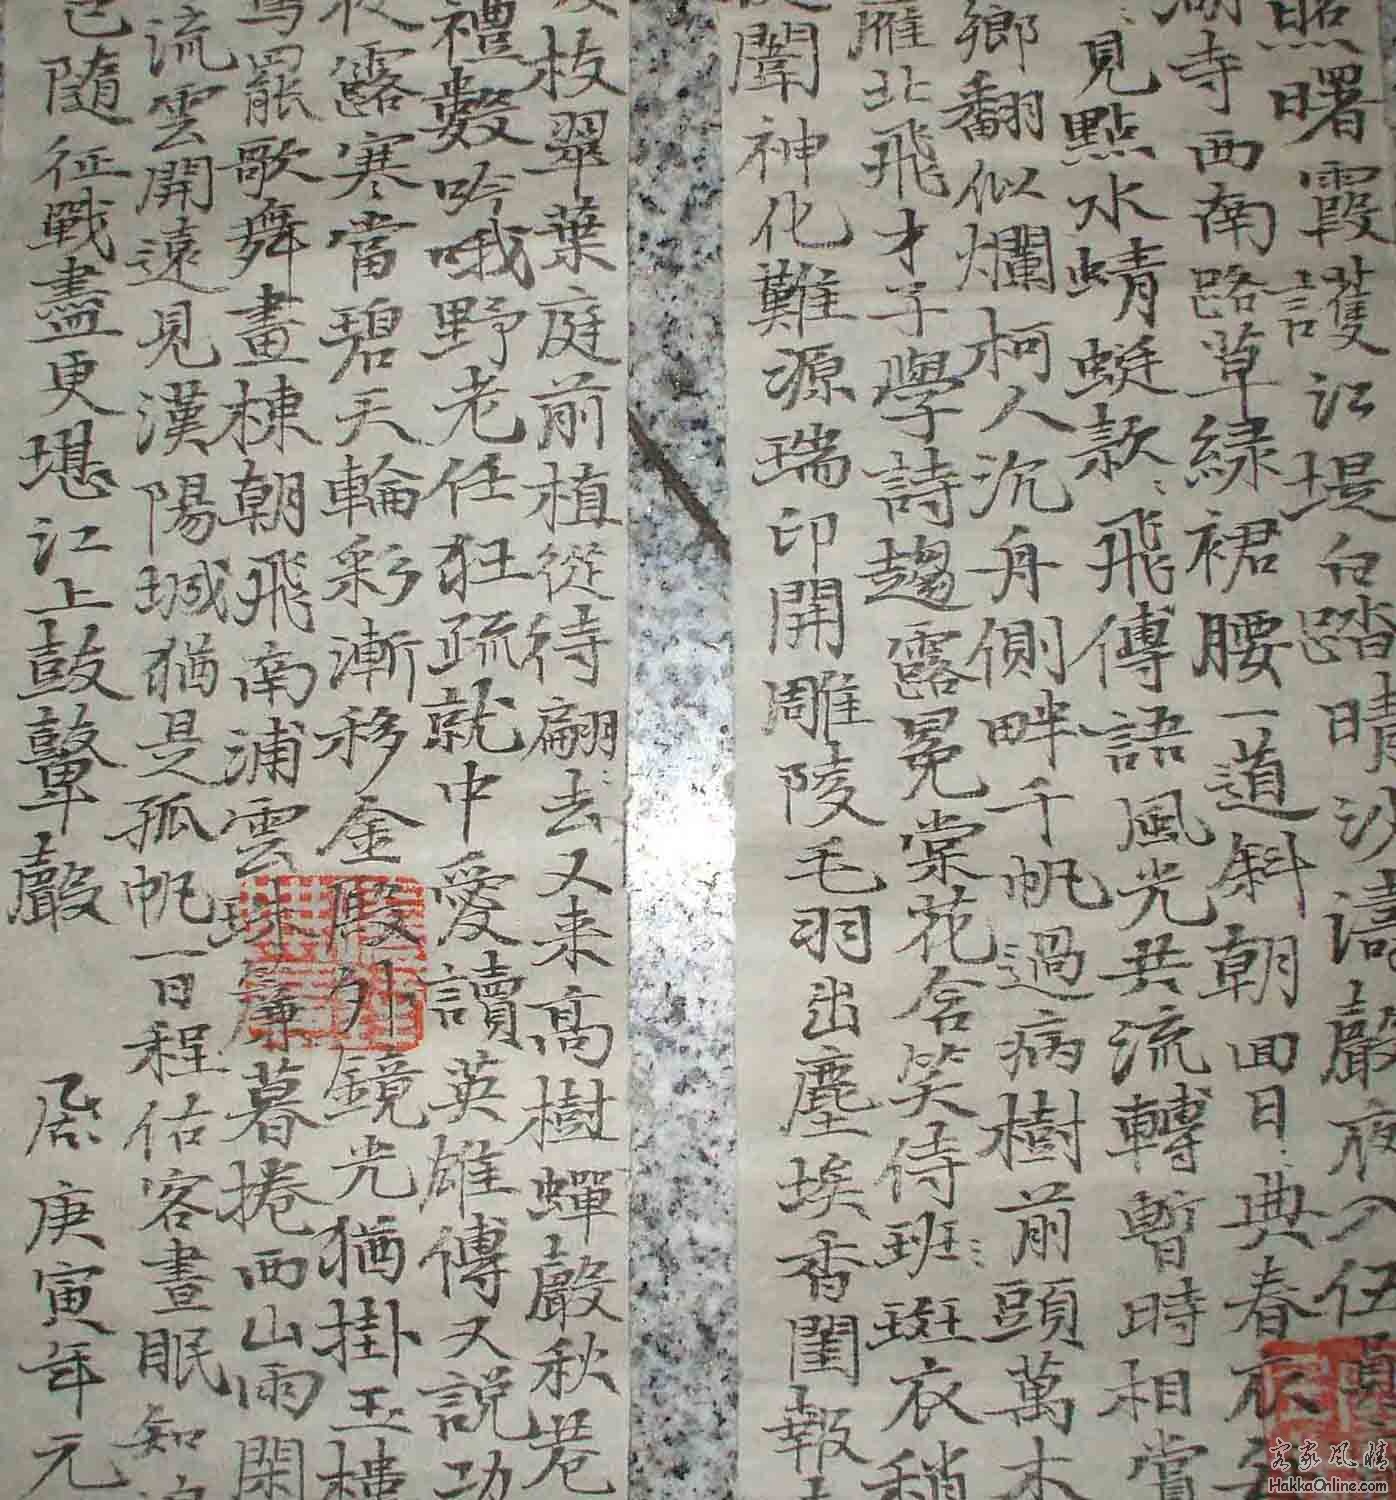 照曙霞護江堤白踏晴沙濤聲夜入伍員
湖寺西南路草綠裙腰一道斜朝回日ミ典春衣
ミ見點水蜻蜓款ミ飛傳語風光共流轉暫時相賞
鄉翻似爛柯人沉舟側畔千帆過病樹前頭萬木
雁北飛才子學詩趨露冕棠花含笑侍班ミ斑衣稍
闈神化難源瑞印開雕陵毛羽出塵埃香閨報
枝翠葉庭前植從待翩ミ去又来高樹蟬聲秋巷
禮數吟哦野老任狂疏就中愛讀英雄傳又説功
夜露寒當碧天輪彩漸移金殿外鏡光猶掛玉樓
鸞罷歌舞畫棟朝飛南浦雲珠廉暮捲西山雨閑
流雲開遠見漢陽城猶是孤帆一日程估客晝眠知
已隨征戰盡更堪江上鼓鼙聲 居 庚寅年元
客家風情
HakkaOnline.com